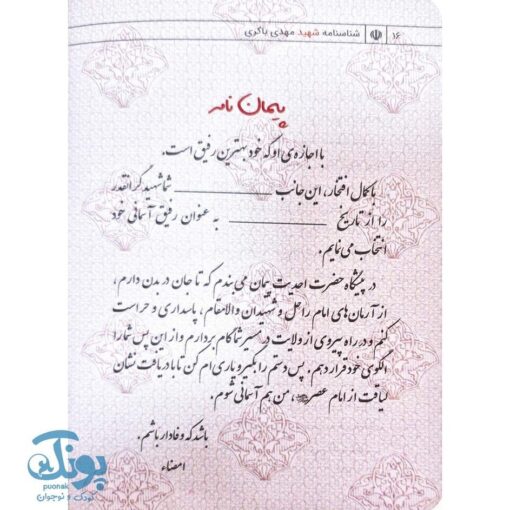 ۱۶ | شناسنامه شهید مهدی باکری
پیمان نامه
با اجازه‌ی او که خود بهترین رفیق است.
با کمال افتخار، این جانب ـــــــــــــــ شما شهید گرانقدر
را از تاریخ ـــــــــــــــ به عنوان رفیق آسمانی خود
انتخاب می‌نمایم.
در پیشگاه حضرت احدیت پیمان می‌بندم که تا جان در بدن دارم،
از آرمان‌های امام راحل و شهیدان والامقام، پاسداری و حراست
کنم و در راه پیروی از ولایت در مسیر شما گام بردارم و از این پس شما را
الگوی خود قرار دهم. پس دستم را بگیر و یاری‌ام کن تا با دریافت نشان
لیاقت از امام عصر، من هم آسمانی شوم.
باشد که وفادار باشم.
امضاء
پونک
puonak
کودک و نوجوان